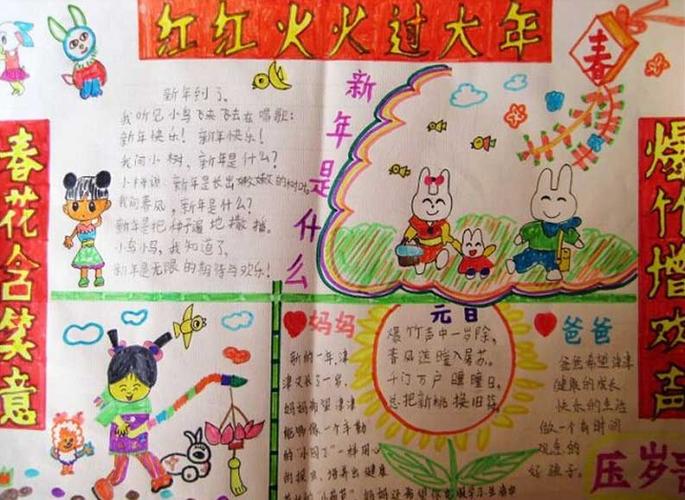 红红火火过大年
春
春花含笑意
爆竹增欢声
新年是什么
新年到了。
我听见小鸟飞来飞去在唱歌:
新年快乐! 新年快乐!
我问小树,新年是什么?
小树说:新年是长出嫩嫩的树叶。
我问春风,新年是什么?
新年是把种子遍地撒播。
小鸟小鸟,我知道了,
新年是无限的期待与欢乐!
妈妈
新的一年,津
津又长了一岁,
妈妈希望津津
能够像一个辛勤
的"小园丁"一样用心
元日
爆竹声中一岁除,
春风送暖入屠苏。
千门万户曈曈日,
总把新桃换旧符。
爸爸
爸爸希望津津
健康的成长
快乐的生活
做一个有时间
观念的
好孩子。
压岁